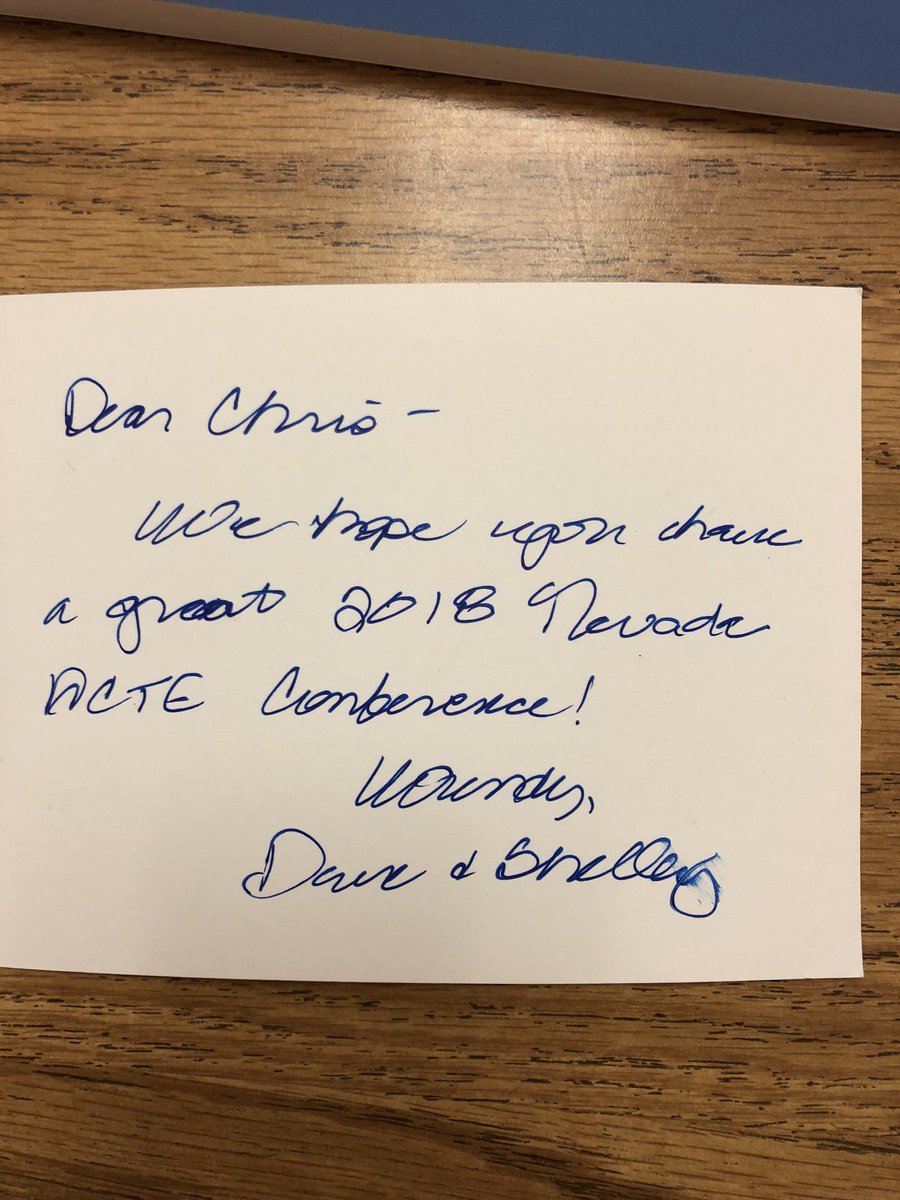 Dear Chris -
We hope you have
a great 2018 Nevada
ACTE Conference!
Warmly,
Dave & Shelley